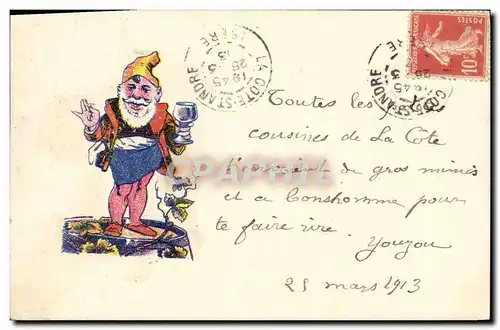 LA COTE-ST-ANDRÉ
ISÈRE
1945
25-3
10c
POSTES
Toutes les
cousines de La Côte
t'envoient de gros mimis
et ce bonshomme pour
te faire rire.
Youyou
25 mars 1913
CPAPHIL.COM